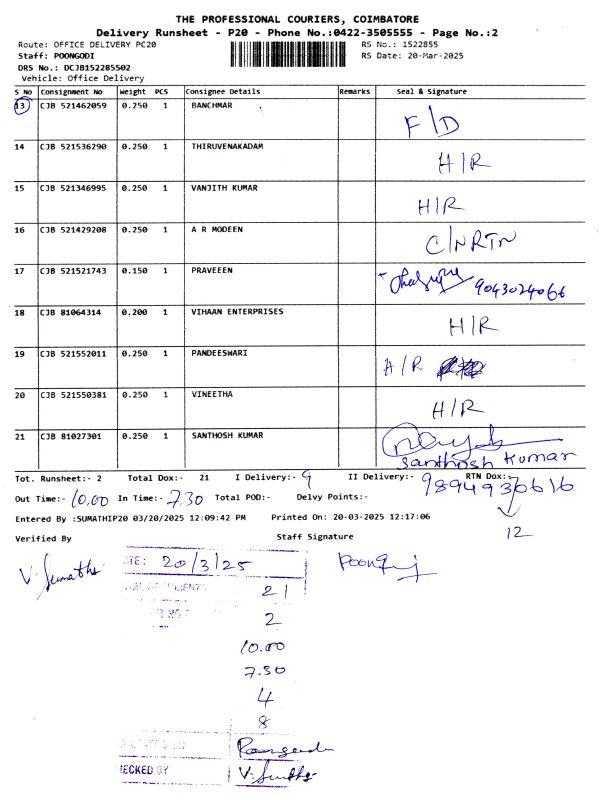 THE PROFESSIONAL COURIERS, COIMBATORE
Delivery Runsheet - P20 - Phone No.:0422-3505555 - Page No.:2
Route: OFFICE DELIVERY PC20 RS No.: 1522855
Staff: POONGODI RS Date: 20-Mar-2025
DRS No.: DCJB152285502
Vehicle: Office Delivery
S No Consignment No Weight PCS Consignee Details Remarks Seal & Signature
13 CJB 521462059 0.250 1 BANCHMAR F/D
14 CJB 521536290 0.250 1 THIRUVENAKADAM H/R
15 CJB 521346995 0.250 1 VANJITH KUMAR H/R
16 CJB 521429208 0.250 1 A R MODEEN C/NRTN
17 CJB 521521743 0.150 1 PRAVEEEN 9043024066
18 CJB 81064314 0.200 1 VIHAAN ENTERPRISES H/R
19 CJB 521552011 0.250 1 PANDEESWARI H/R
20 CJB 521550381 0.250 1 VINEETHA H/R
21 CJB 81027301 0.250 1 SANTHOSH KUMAR Santhosh Kumar
Tot. Runsheet:- 2 Total Dox:- 21 I Delivery:- 9 II Delivery:- RTN Dox:-
9894930616
Out Time:- 10.00 In Time:- 7.30 Total POD:- Delvy Points:-
12
Entered By :SUMATHIP20 03/20/2025 12:09:42 PM Printed On: 20-03-2025 12:17:06
Verified By Staff Signature
V. Sumathi
ATE: 20/3/25
21
2
10.00
7.30
4
8
HECKED BY V. Sumathi